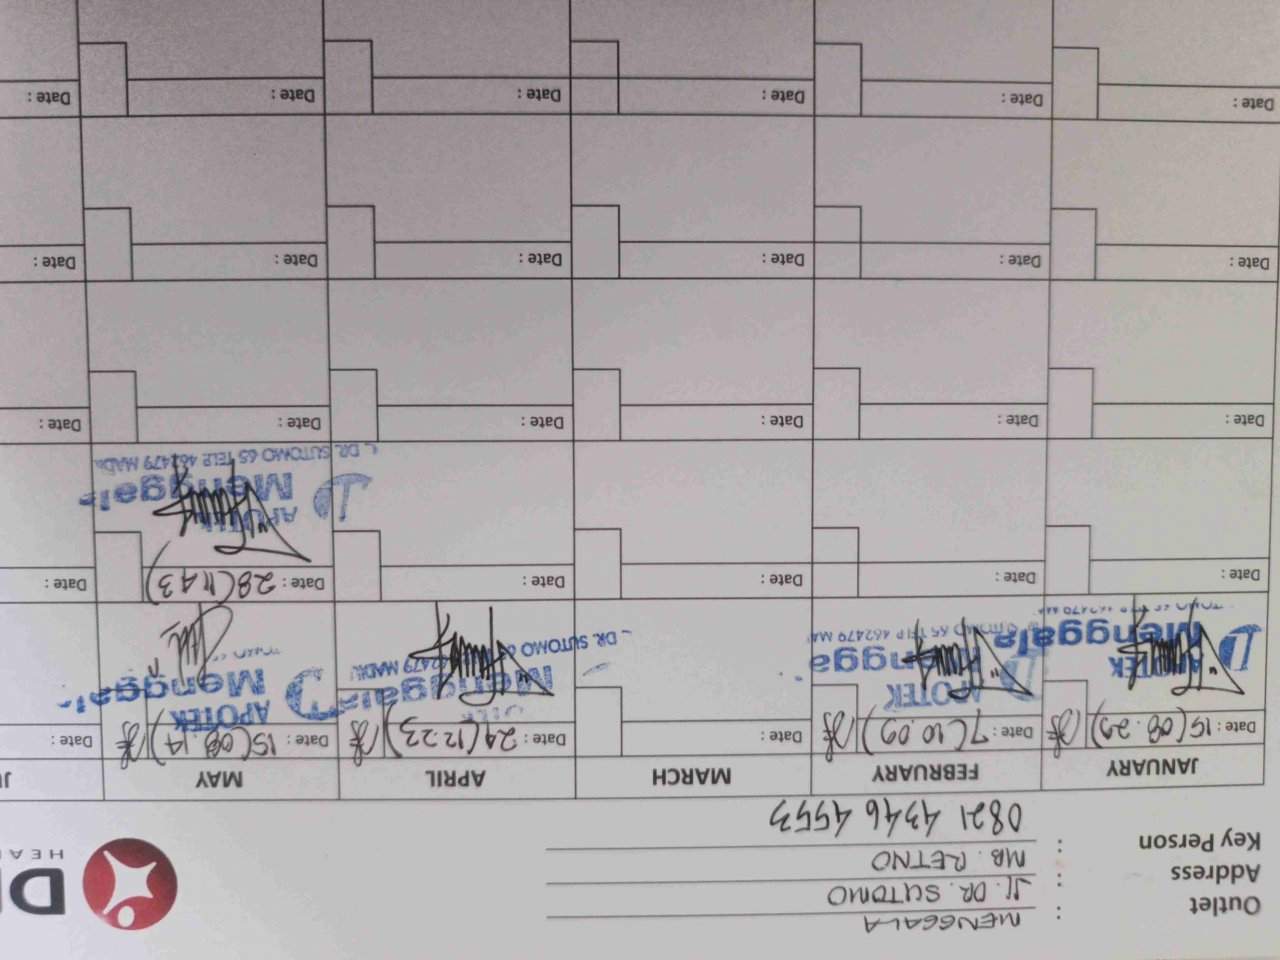 Outlet : MENGGALA
Address : Jl. DR. SUTOMO
Key Person : MB. RETNO
0821 4346 4553
HEA
JANUARY FEBRUARY MARCH APRIL MAY
Date : 15 (08.29) Date : 7 (10.09) Date : Date : 24 (12.23) Date : 15 (08.14) Date :
APOTEK APOTEK APOTEK
Menggala Menggala Menggala
DR. SUTOMO 65 TELP. 462479 MADI
Date : Date : Date : Date : Date : 28 (11.43) Date :
APOTEK
Menggala
DR. SUTOMO 65 TELP. 462479 MADI
Date : Date : Date : Date : Date : Date :
Date : Date : Date : Date : Date : Date :
Date : Date : Date : Date : Date : Date :